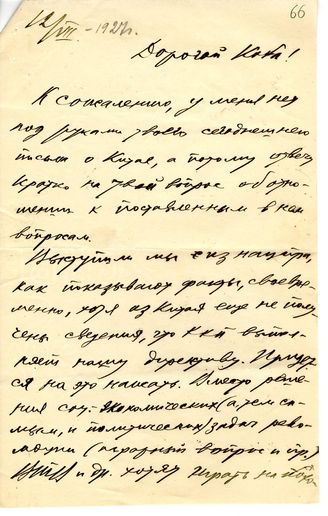 66
12/VII – 1927 г.
Дорогой Коба!
К сожалению, у меня нет
под руками твоего сегодняшнего
письма о Китае, а потому отвечу
кратко на твой вопрос об отно-
шении к поставленным в нем
вопросам.
Выступили мы с из нашей,
как показывают факты, своевре-
менно, хотя из Китая еще не полу-
чены сведения, что ККП выпол-
няет нашу директиву. Придет-
ся на это нажать. Вместо реше-
ния соц.-экономических (а, тем са-
мым, и политических) задач рево-
люции (аграрный вопрос и пр.)
и др. хотят играть на